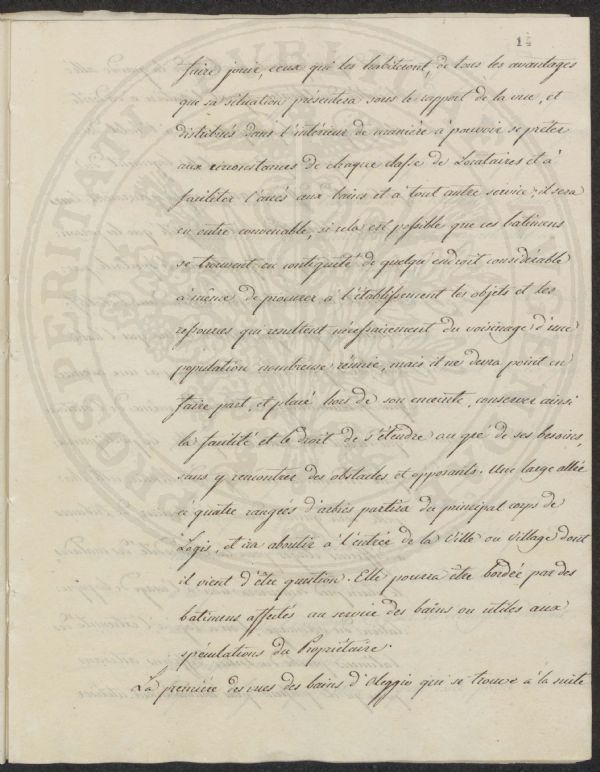 14
faire jouir, ceux qui les habiteront, de tous les avantages
que sa situation présentera sous le rapport de la vue, et
distribués dans l'intérieur de manière à pouvoir se prêter
aux circonstances de chaque classe de Locataires et à
faciliter l'accès aux bains et à tout autre service; il sera
en outre convenable, si cela est possible que ces batimens
se trouvent en contiguité de quelque endroit considérable
à même de procurer à l'établissement les objets et les
ressources qui resultent nécessairement du voisinage d'une
population nombreuse réunie, mais il ne devra point en
faire part, et placé hors de son enceinte, conserver ainsi
la facilité et le droit de s'étendre au gré de ses besoins,
sans y rencontrer des obstacles et opposants. Une large allée
à quatre rangées d'arbres partira du principal corps de
Logis, et ira aboutir à l'entrée de la Ville ou village dont
il vient d'être question. Elle pourra être bordée par des
batimens affectés au service des bains ou utiles aux
spéculations du Propriétaire.
La première des vues des bains d'Oleggio qui se trouve à la suite